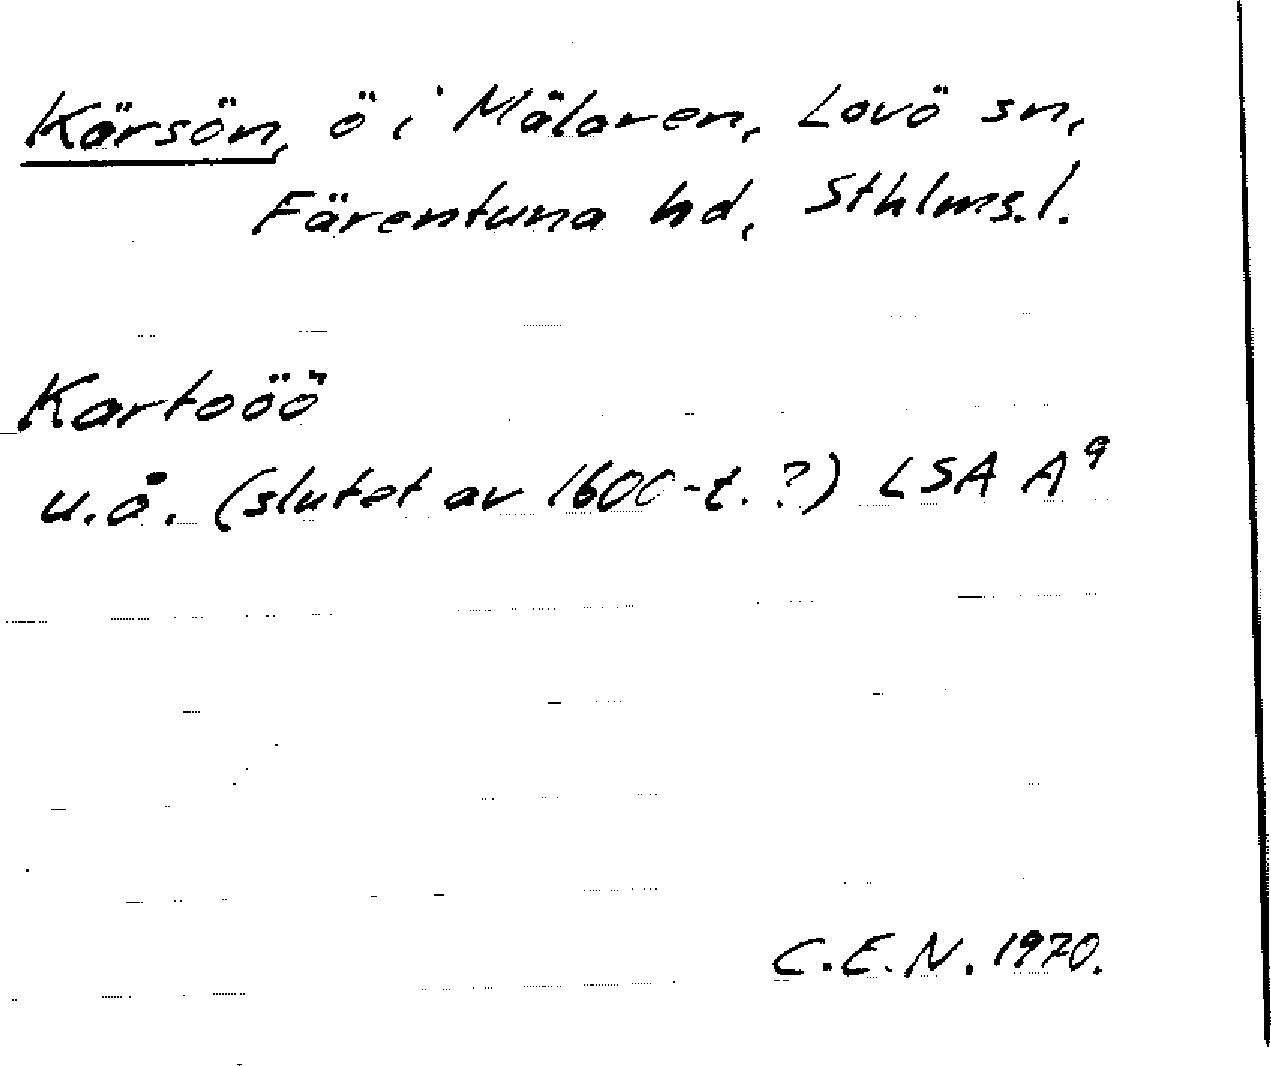 Kärsön, ö i Mälaren, Lovö sn,
Färentuna hd, Sthlms.l.
Kartoöö
u.å. (slutet av 1600-t. ?) LSA A⁹
C.E.N. 1970.